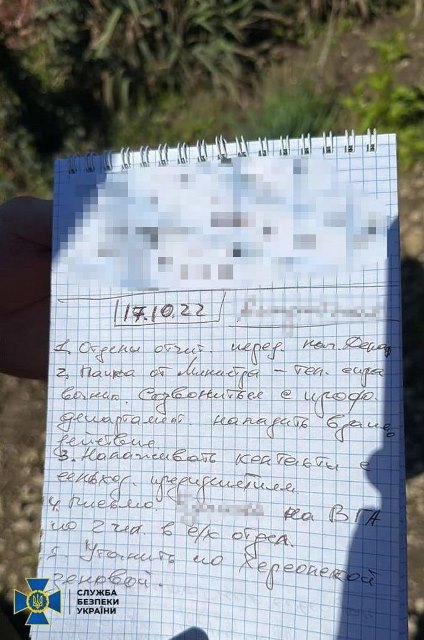 17.10.22
1. Отделы отчит. перед. нач. Депар
2. Папка от Министра - тел.
Созвониться с
департамент. наладить взаимо
действие.
3. Налаживать контакты с
сельхоз. предприятием
4. Письмо на ВГА
по 2 чел. в с/х отдел.
5. Уточнить по Херсонской
зеновой.
СЛУЖБА
БЕЗПЕКИ
УКРАЇНИ